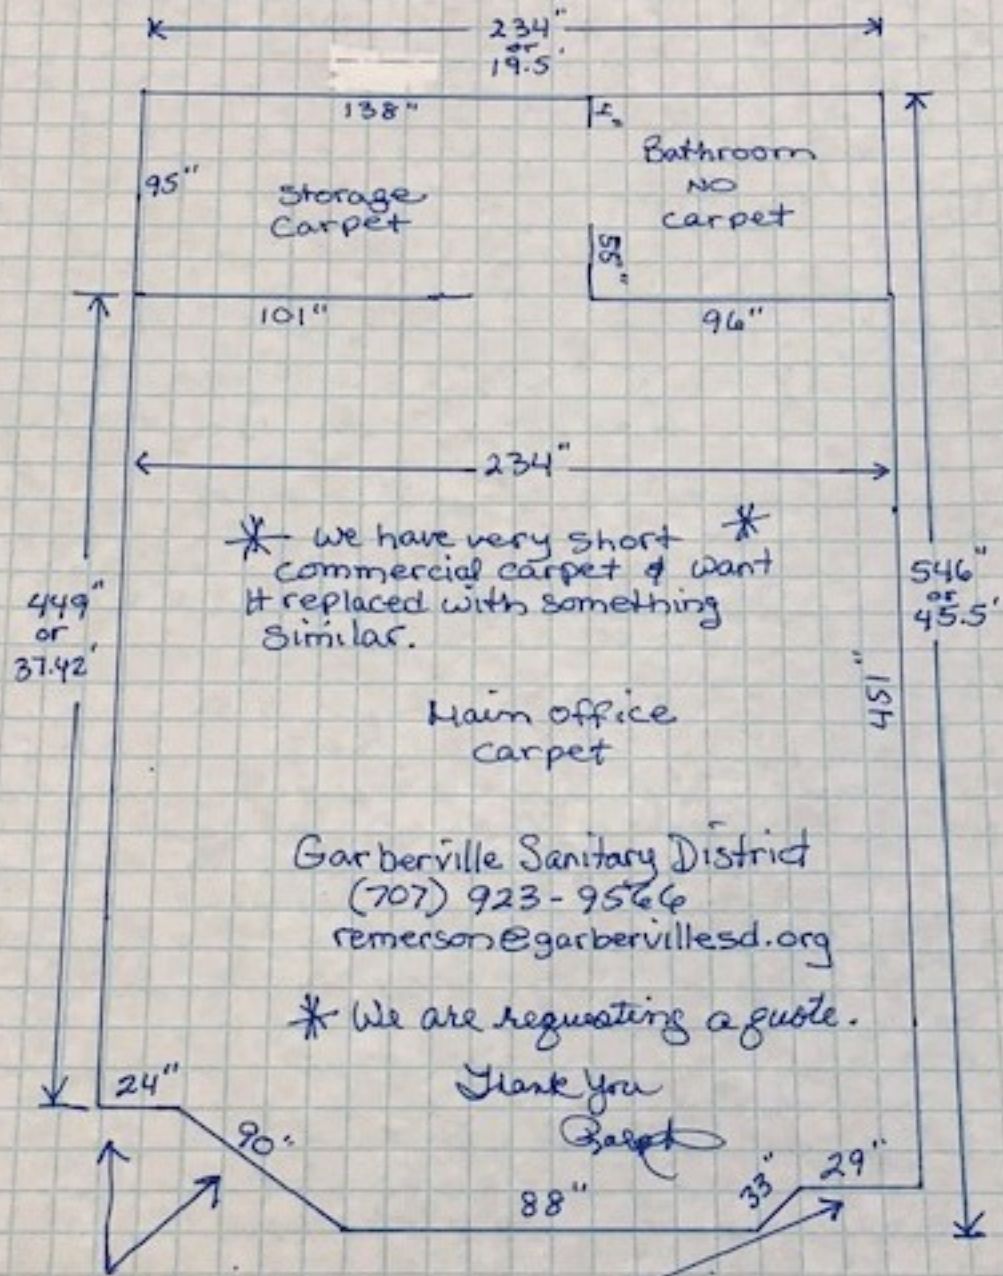 234"
or
19.5'
138"
4"
Bathroom
NO
carpet
95"
Storage
Carpet
55"
101"
96"
234"
* we have very short *
commercial carpet & want
it replaced with something
similar.
449"
or
37.42'
546"
or
45.5'
451"
Main office
carpet
Garberville Sanitary District
(707) 923-9566
remerson@garbervillesd.org
* We are requesting a quote.
Thank You
24"
90"
88"
33"
29"